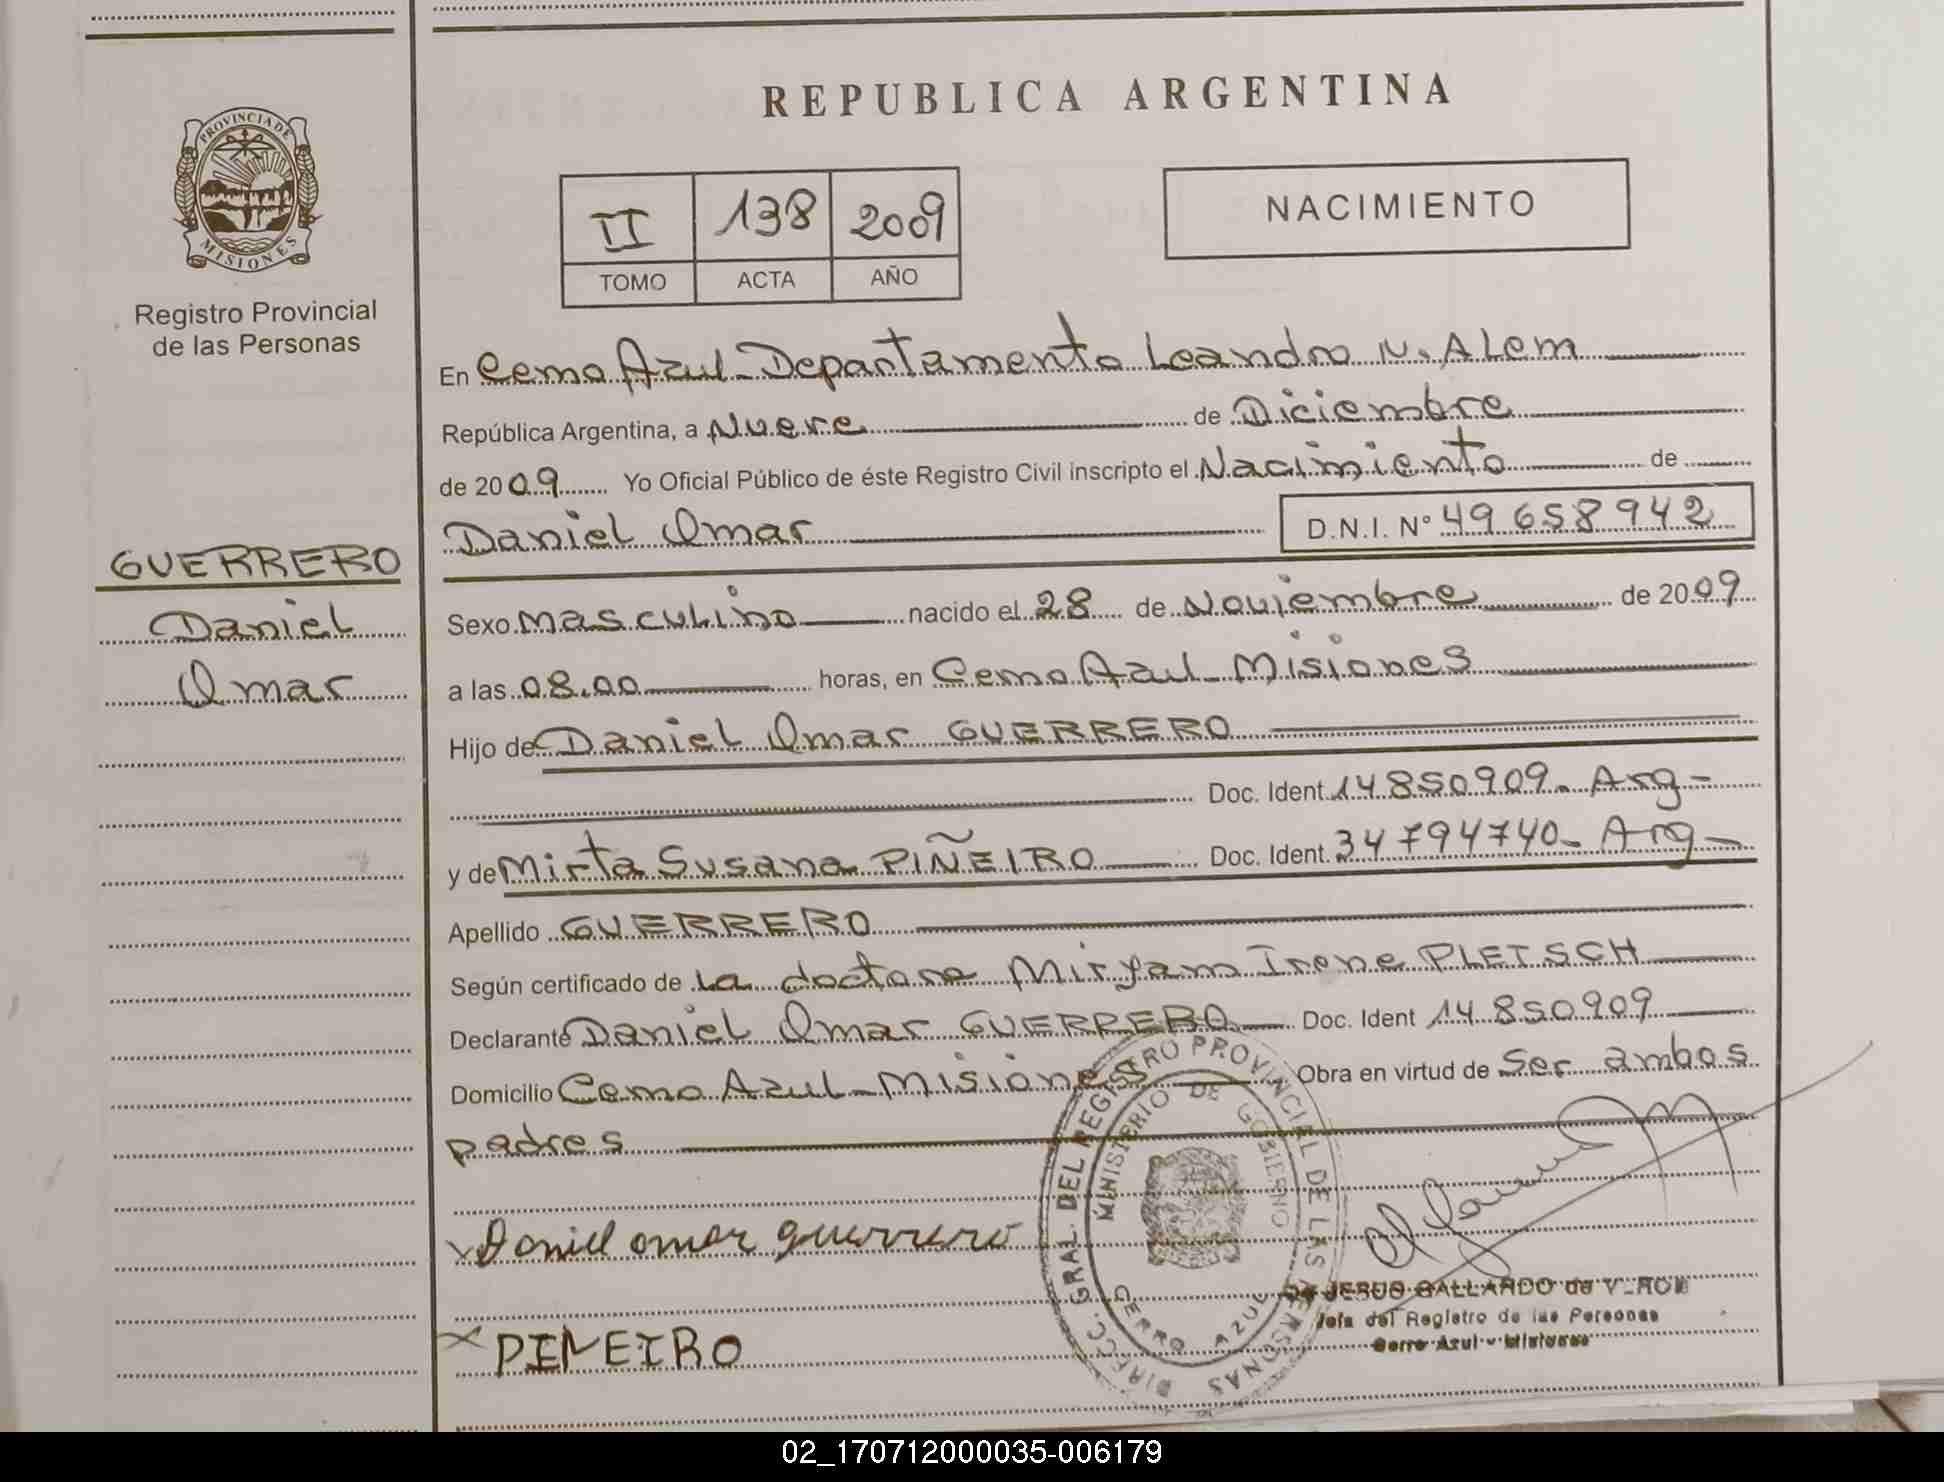 REPUBLICA ARGENTINA
PROVINCIA DE
MISIONES
Registro Provincial
de las Personas
II 138 2009
TOMO ACTA AÑO
NACIMIENTO
En Cerro Azul - Departamento Leandro N. Alem
República Argentina, a Nueve de Diciembre
de 2009 Yo Oficial Público de éste Registro Civil inscripto el Nacimiento de
Daniel Omar D.N.I. Nº 49 658 942
GUERRERO
Daniel
Omar
Sexo masculino nacido el 28 de Noviembre de 2009
a las 08.00 horas, en Cerro Azul - Misiones
Hijo de Daniel Omar GUERRERO
Doc. Ident. 14850909. Arg-
y de Mirta Susana PIÑEIRO Doc. Ident. 34794740- Arg-
Apellido GUERRERO
Según certificado de la doctora Miryam Irene PLETSCH
Declarante Daniel Omar GUERRERO Doc. Ident 14 850909
Domicilio Cerro Azul - Misiones Obra en virtud de ser ambos
padres
x Daniel omar guerrero
x PIÑEIRO
DIRECC. GRAL. DEL REGISTRO PROVINCIAL DE LAS PERSONAS
MINISTERIO DE GOBIERNO
CERRO AZUL
JESUS GALLARDO de VERON
Jefa del Registro de las Personas
Cerro Azul - Misiones
02_170712000035-006179